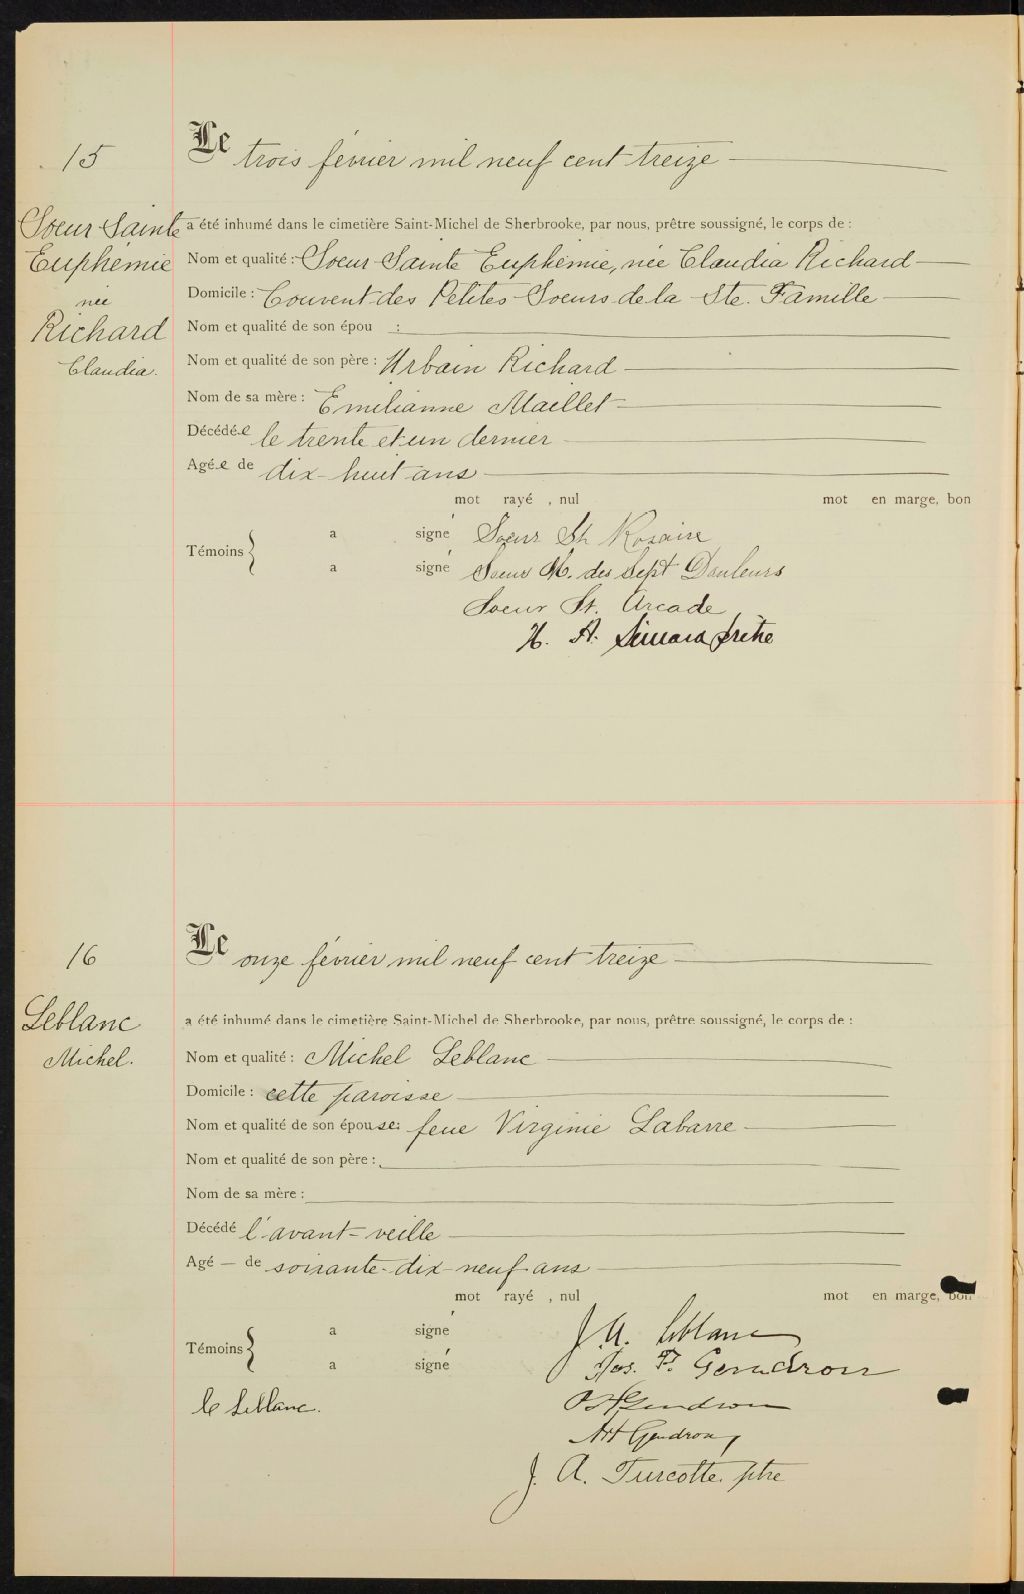 15
Le trois février mil neuf cent treize
Soeur Sainte
Euphémie
née
Richard
Claudia.
a été inhumé dans le cimetière Saint-Michel de Sherbrooke, par nous, prêtre soussigné, le corps de :
Nom et qualité : Soeur Sainte Euphémie, née Claudia Richard
Domicile : Couvent des Petites Soeurs de la Ste. Famille
Nom et qualité de son épou :
Nom et qualité de son père : Urbain Richard
Nom de sa mère : Emilianne Maillet
Décédée le trente et un dernier
Agée de dix-huit ans
mot rayé , nul mot en marge, bon
Témoins
a signé Soeur St Rosaire
a signé Soeur M. des Sept Douleurs
Soeur St. Arcade
H. A. Simard prêtre
16
Le onze février mil neuf cent treize
Leblanc
Michel.
a été inhumé dans le cimetière Saint-Michel de Sherbrooke, par nous, prêtre soussigné, le corps de :
Nom et qualité : Michel Leblanc
Domicile : cette paroisse
Nom et qualité de son épouse: feue Virginie Labarre
Nom et qualité de son père :
Nom de sa mère :
Décédé l'avant-veille
Agé — de soixante-dix-neuf ans
mot rayé , nul mot en marge, bon
Témoins
a signé J. A. Leblanc
a signé Jos. P. Gendron
Leblanc.
Gendron
Art Gendron
J. A. Turcotte. ptre